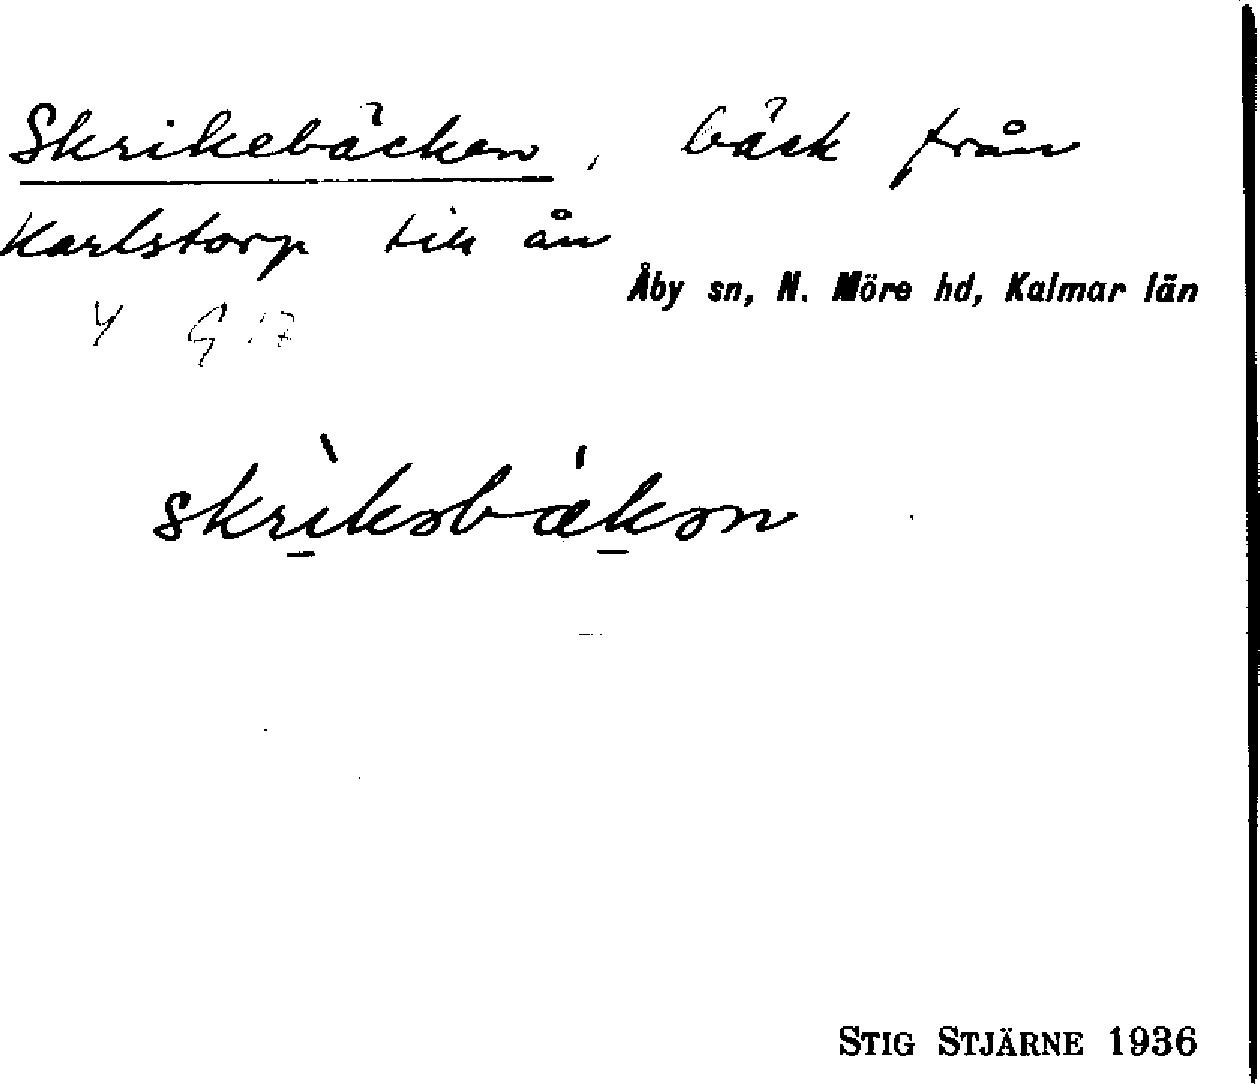 Skrikebäcken, bäck från
Karlstorp till ån
Åby sn, N. Möre hd, Kalmar län
skrìkəbækən
STIG STJÄRNE 1936